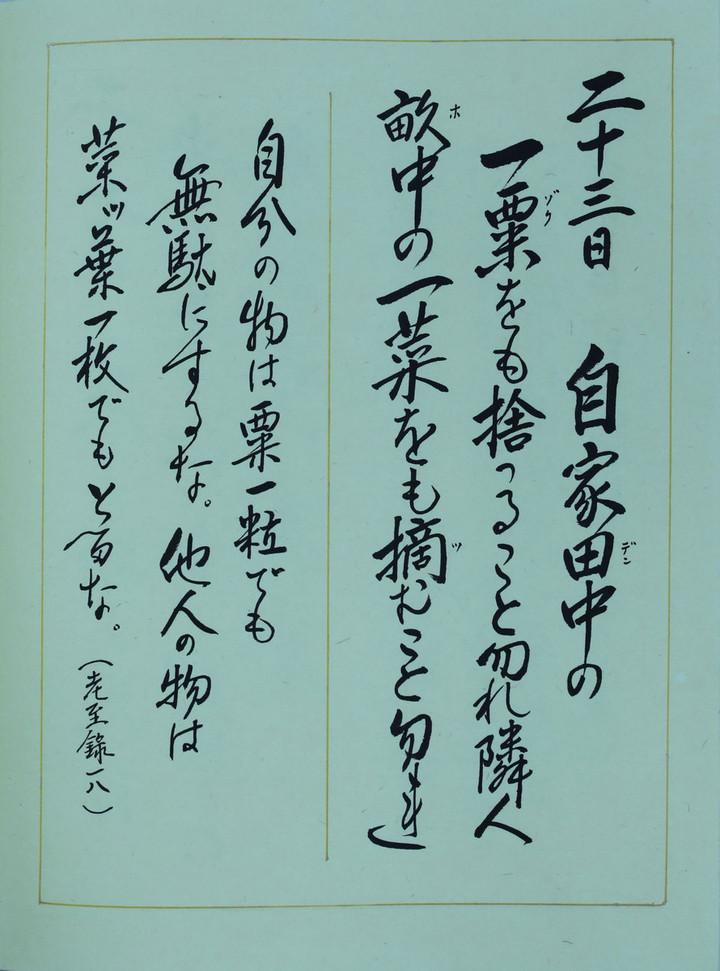 二十三日　自家田中の
一粟をも捨つること勿れ隣人
畝中の一菜をも摘むこと勿れ
自分の物は粟一粒でも
無駄にするな。他人の物は
菜ッ葉一枚でもと曰な。
(老至錄一八)
デン
ゾク
ホ
ツ